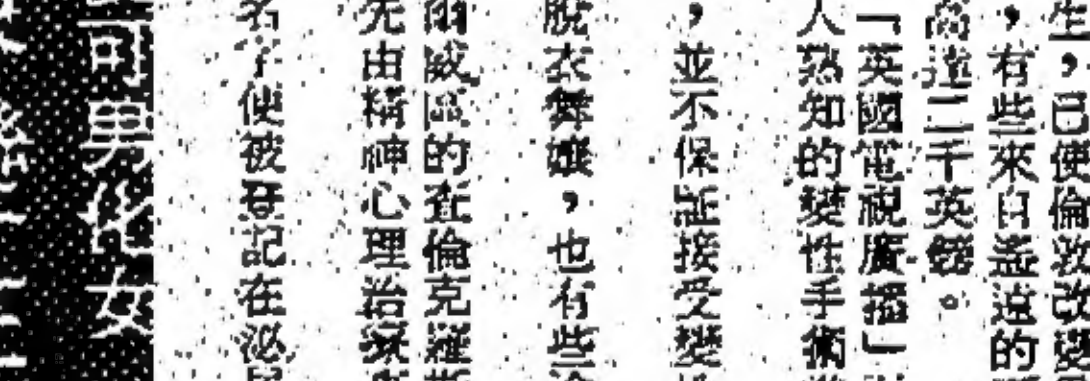 生,已使倫敦改變
,有些來自遙遠的
高達二千英鎊。
「英國電視廣播」
人熟知的變性手術
,並不保証接受變性
脫衣舞孃,也有些
爾威區的查倫克羅斯
先由精神心理治療
名字便被登記在泌尿
可男後女